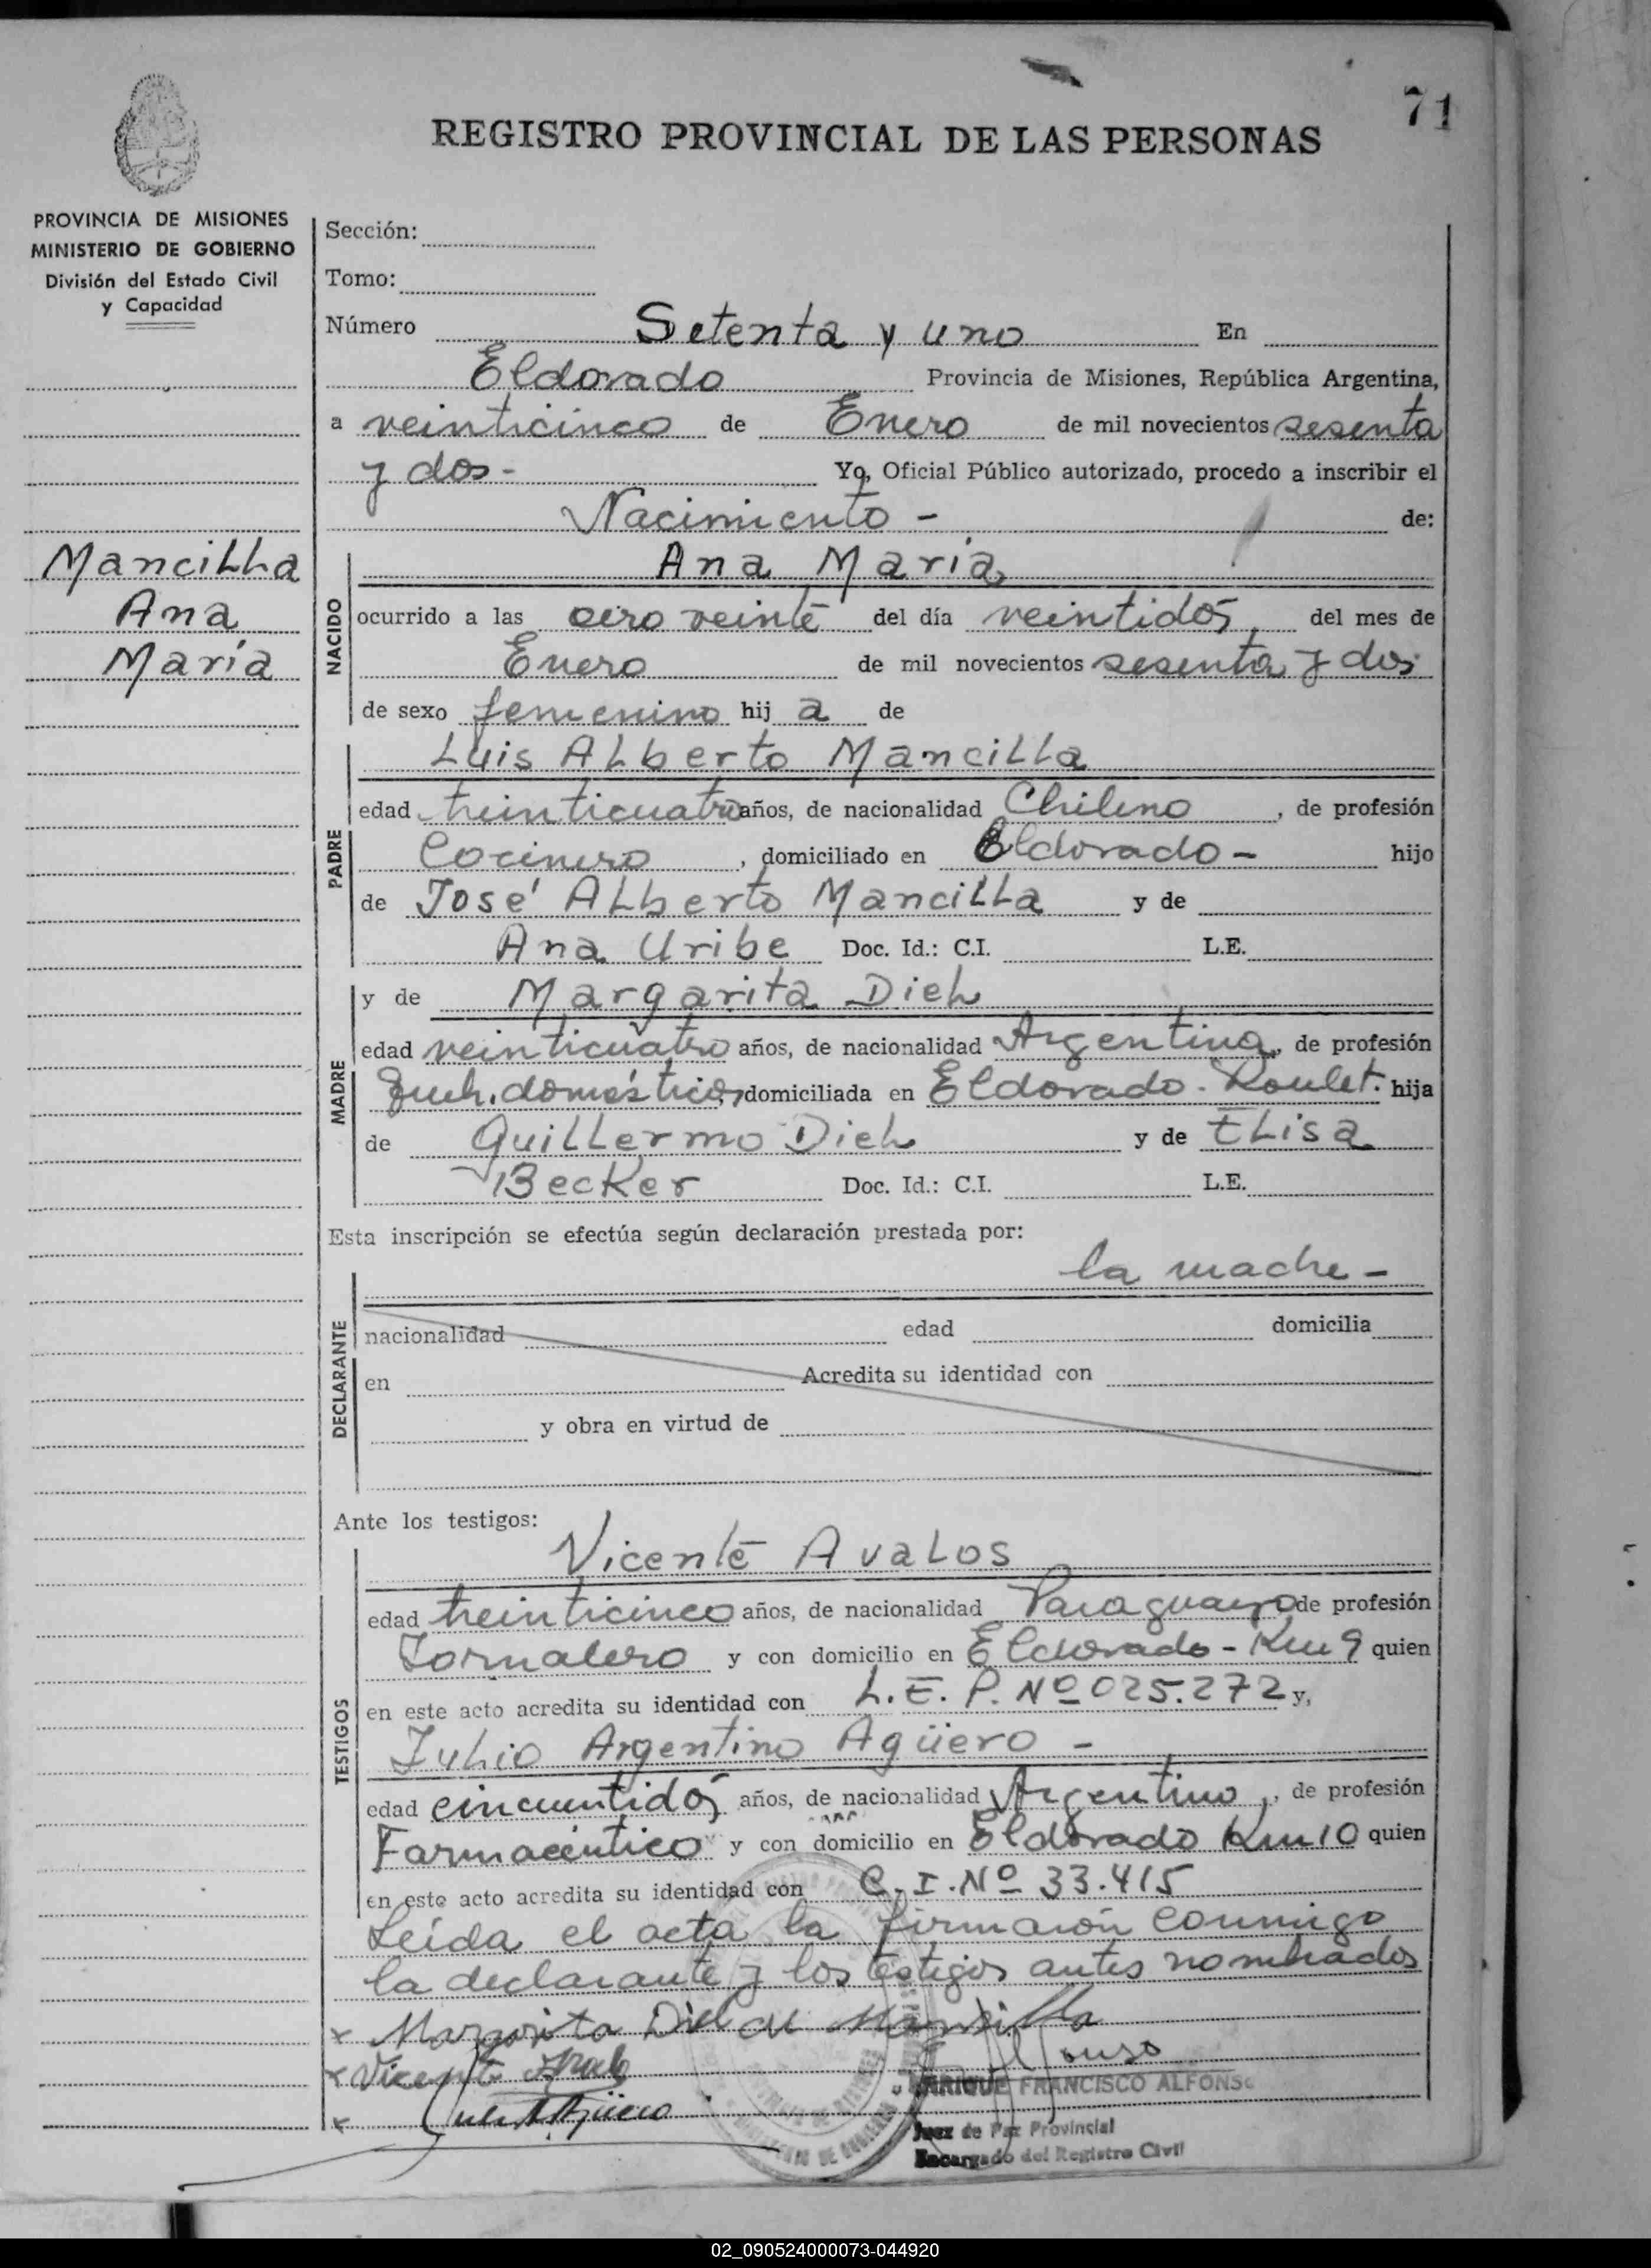 71
REGISTRO PROVINCIAL DE LAS PERSONAS
PROVINCIA DE MISIONES
MINISTERIO DE GOBIERNO
División del Estado Civil
y Capacidad
Mancilla
Ana
María
Sección:
Tomo:
Número Setenta y uno En
Eldorado Provincia de Misiones, República Argentina,
a veinticinco de Enero de mil novecientos sesenta
y dos - Yo, Oficial Público autorizado, procedo a inscribir el
Nacimiento - de:
NACIDO
Ana María
ocurrido a las cero veinte del día veintidós del mes de
Enero de mil novecientos sesenta y dos
de sexo femenino hij a de
PADRE
Luis Alberto Mancilla
edad treinticuatro años, de nacionalidad Chileno, de profesión
Cocinero, domiciliado en Eldorado - hijo
de José Alberto Mancilla y de
Ana Uribe Doc. Id.: C.I. L.E.
MADRE
y de Margarita Dieh
edad veinticuatro años, de nacionalidad Argentina, de profesión
doméstico, domiciliada en Eldorado - Roulet. hija
de Guillermo Dieh y de Elisa
Becker Doc. Id.: C.I. L.E.
Esta inscripción se efectúa según declaración prestada por:
la madre -
DECLARANTE
nacionalidad edad domicilia
en Acredita su identidad con
y obra en virtud de
Ante los testigos:
TESTIGOS
Vicente Avalos
edad treinticinco años, de nacionalidad Paraguayo de profesión
Jornalero y con domicilio en Eldorado - Km 9 quien
en este acto acredita su identidad con L.E.P. Nº 025.272 y,
Julio Argentino Agüero -
edad cincuentidós años, de nacionalidad Argentino, de profesión
Farmacéutico y con domicilio en Eldorado Km 10 quien
en este acto acredita su identidad con C.I. Nº 33.415
Leída el acta la firmaron conmigo
la declarante y los testigos antes nombrados
x Margarita Diel de Mansilla
x Vicente
x Agüero
ENRIQUE FRANCISCO ALFONSO
Juez de Paz Provincial
Encargado del Registro Civil
02_090524000073-044920